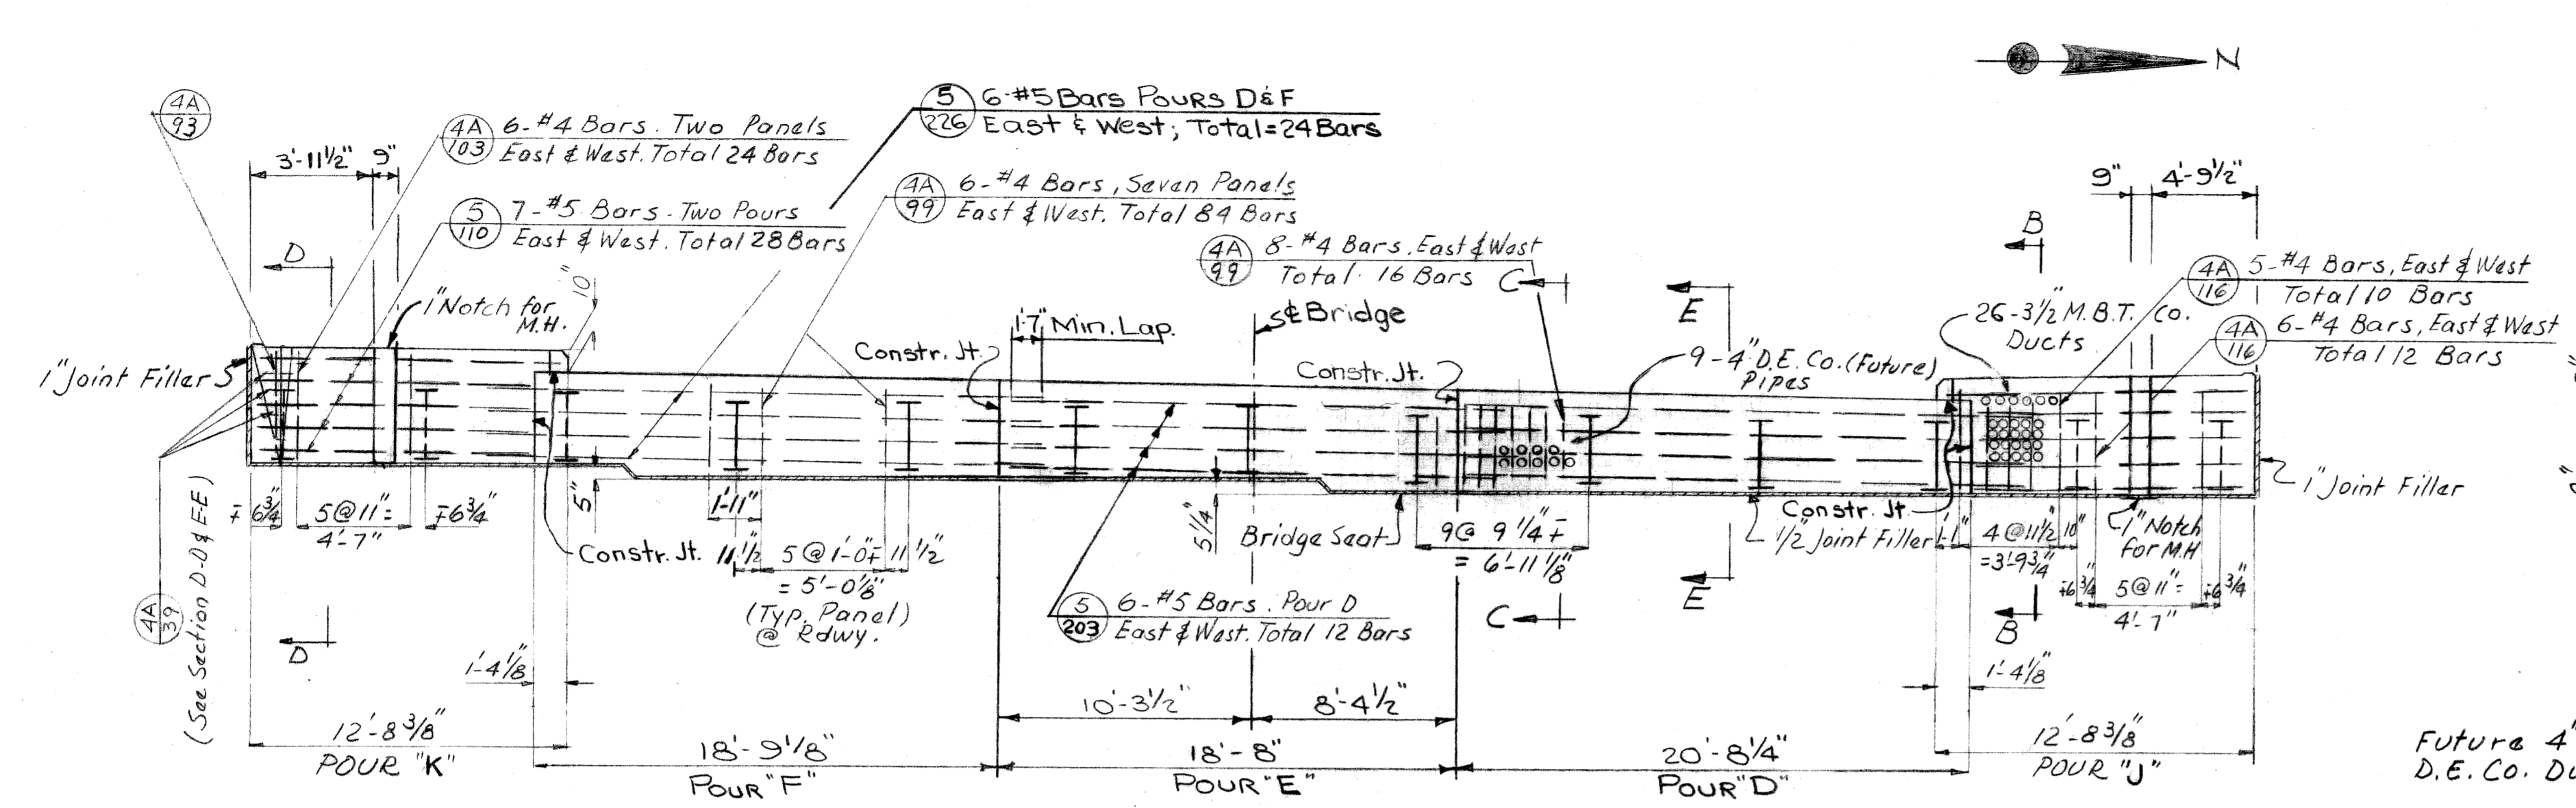 N
4A
93
3'-11½" 9"
4A
103
6-#4 Bars. Two Panels
East & West. Total 24 Bars
5
226
6-#5 Bars Pours D&F
East & West; Total=24 Bars
5
110
7-#5 Bars-Two Pours
East & West. Total 28 Bars
4A
99
6-#4 Bars, Seven Panels
East & West. Total 84 Bars
4A
99
8-#4 Bars. East & West
Total. 16 Bars
9" 4'-9½"
4A
116
5-#4 Bars, East & West
Total 10 Bars
4A
116
6-#4 Bars, East & West
Total 12 Bars
D
B
C
E
10"
1" Notch for
M.H.
1'-7" Min. Lap.
S ℄ Bridge
26-3½" M.B.T. Co.
Ducts
Constr. Jt.
Constr. Jt.
9-4" D.E. Co. (Future)
Pipes
1" Joint Filler
1" Joint Filler
∓ 6¾"
5@11"=
4'-7"
∓6¾"
5"
1'-11"
Constr. Jt.
11½" 5@1'-0"∓ 11½"
= 5'-0⅛"
(Typ. Panel)
@ Rdwy.
5¼"
Bridge Seat
9@ 9¼"∓
= 6'-11⅛"
Constr. Jt.
½" Joint Filler
1'-1" 4@11½" 10"
=3'-9¾"
1" Notch
for M.H
∓6¾"
5@11"=
4'-7"
∓6¾"
4A
39
(See Section D-D & E-E)
5
203
6-#5 Bars. Pour D
East & West. Total 12 Bars
D
C
E
B
1'-4⅛"
1'-4⅛"
10'-3½"
8'-4½"
12'-8⅜"
POUR "K"
18'-9⅛"
POUR "F"
18'-8"
POUR "E"
20'-8¼"
POUR "D"
12'-8⅜"
POUR "J"
Future 4"
D.E. Co. Du